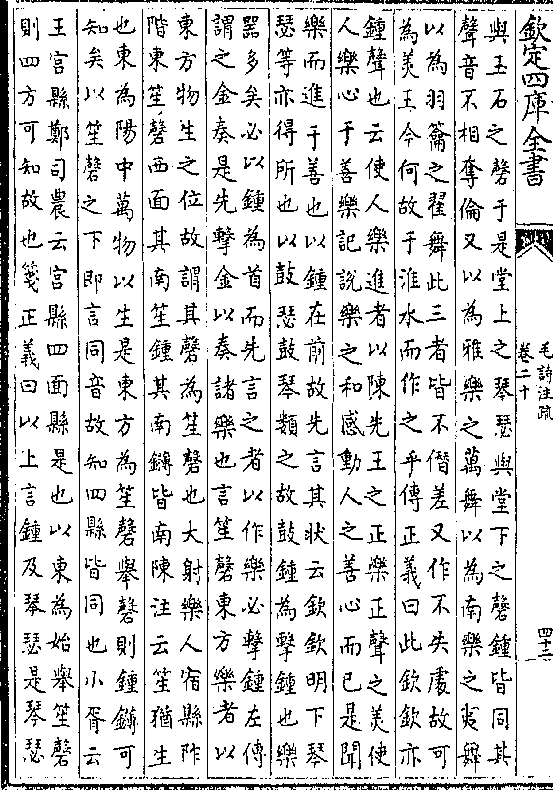 欽定四庫全書
毛詩注疏
卷二十
四十二
與玉石之磬于是堂上之琴瑟與堂下之磬鍾皆同其
聲音不相奪倫又以為雅樂之萬舞以為南樂之夷舞
以為羽籥之翟舞此三者皆不僭差又作不失處故可
為美王今何故于淮水而作之乎傳正義曰此欽欽亦
鍾聲也云使人樂進者以陳先王之正樂正聲之美使
人樂心于善樂記說樂之和感動人之善心而已是聞
樂而進于善也以鍾在前故先言其狀云欽欽明下琴
瑟等亦得所也以鼓瑟鼓琴類之故鼓鍾為擊鍾也樂
器多矣必以鍾為首而先言之者以作樂必擊鍾左傳
謂之金奏是先擊金以奏諸樂也言笙磬東方樂者以
東方物生之位故謂其磬為笙磬也大射樂人宿縣阼
階東笙磬西面其南笙鍾其南鑮皆南陳注云笙猶生
也東為陽中萬物以生是東方為笙磬舉磬則鍾鑮可
知矣以笙磬之下即言同音故知四縣皆同也小胥云
王宮縣鄭司農云宮縣四面縣是也以東為始舉笙磬
則四方可知故也箋正義曰以上言鍾及琴瑟是琴瑟